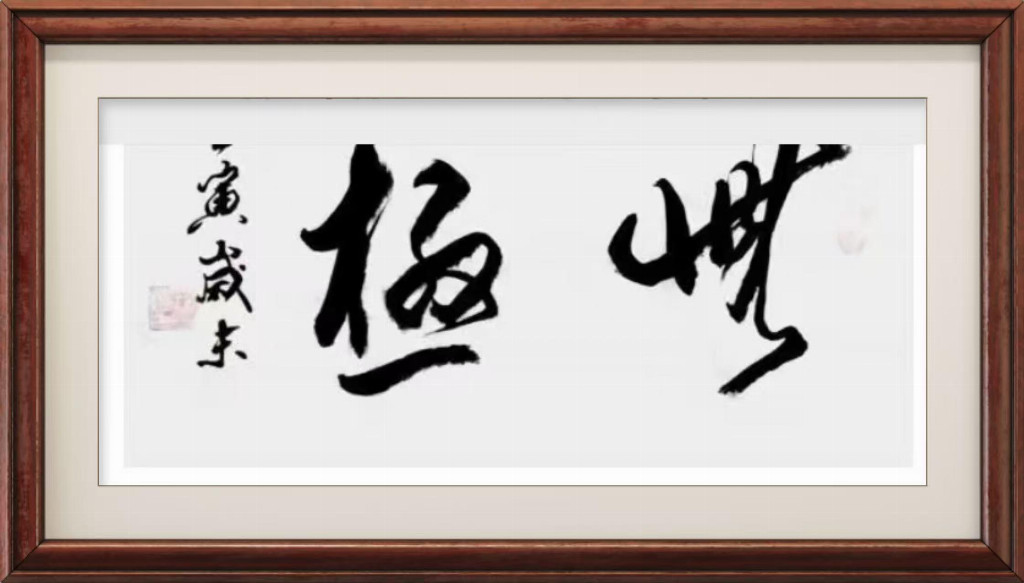 無極
寅歲末